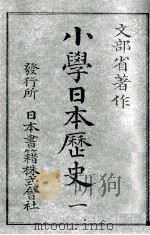 文部省著作
小學日本歷史 一
發行所 日本書籍株式會社